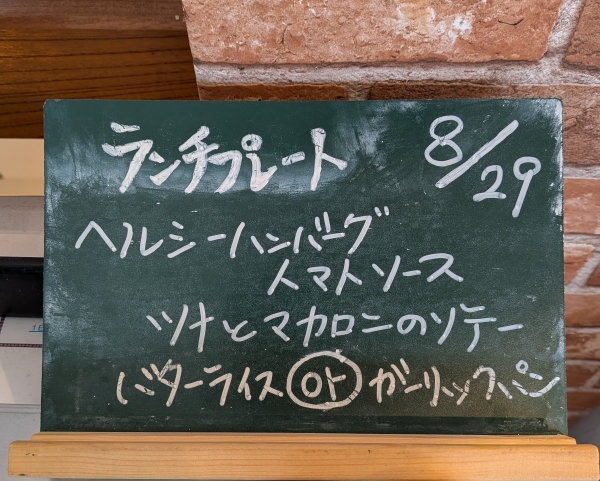 ランチプレート 8/29
ヘルシーハンバーグ
トマトソース
ツナとマカロニのソテー
バターライス or ガーリックパン